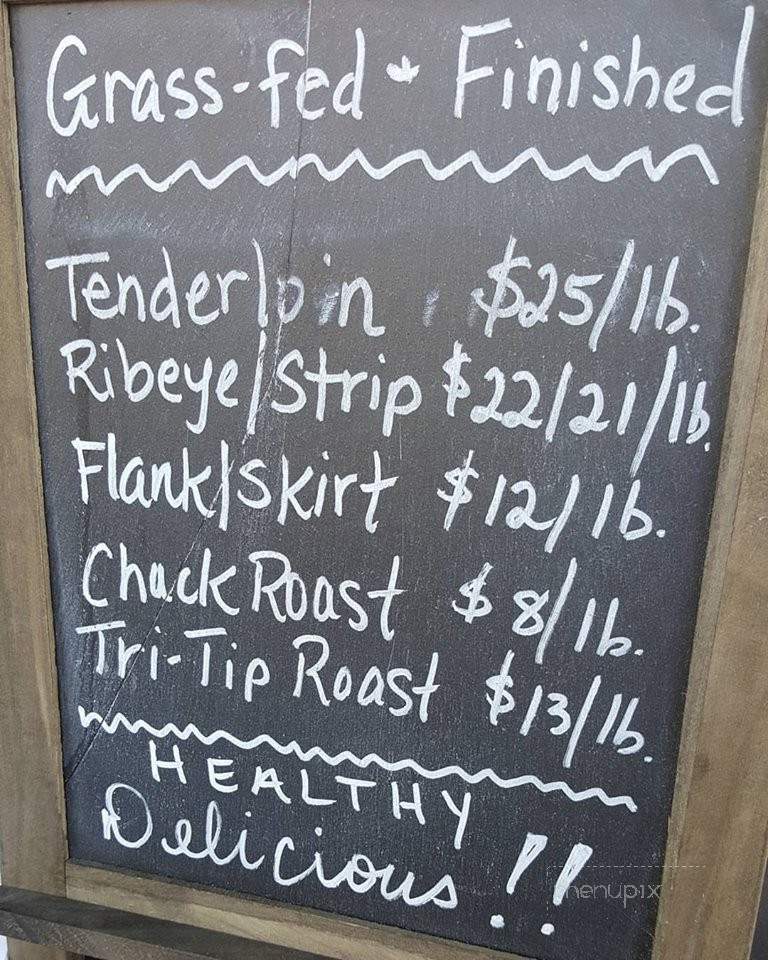 Grass-fed • Finished
Tenderloin $25/lb.
Ribeye/Strip $22/21/lb.
Flank/Skirt $12/lb.
Chuck Roast $8/lb.
Tri-Tip Roast $13/lb.
HEALTHY
Delicious!!
menupix